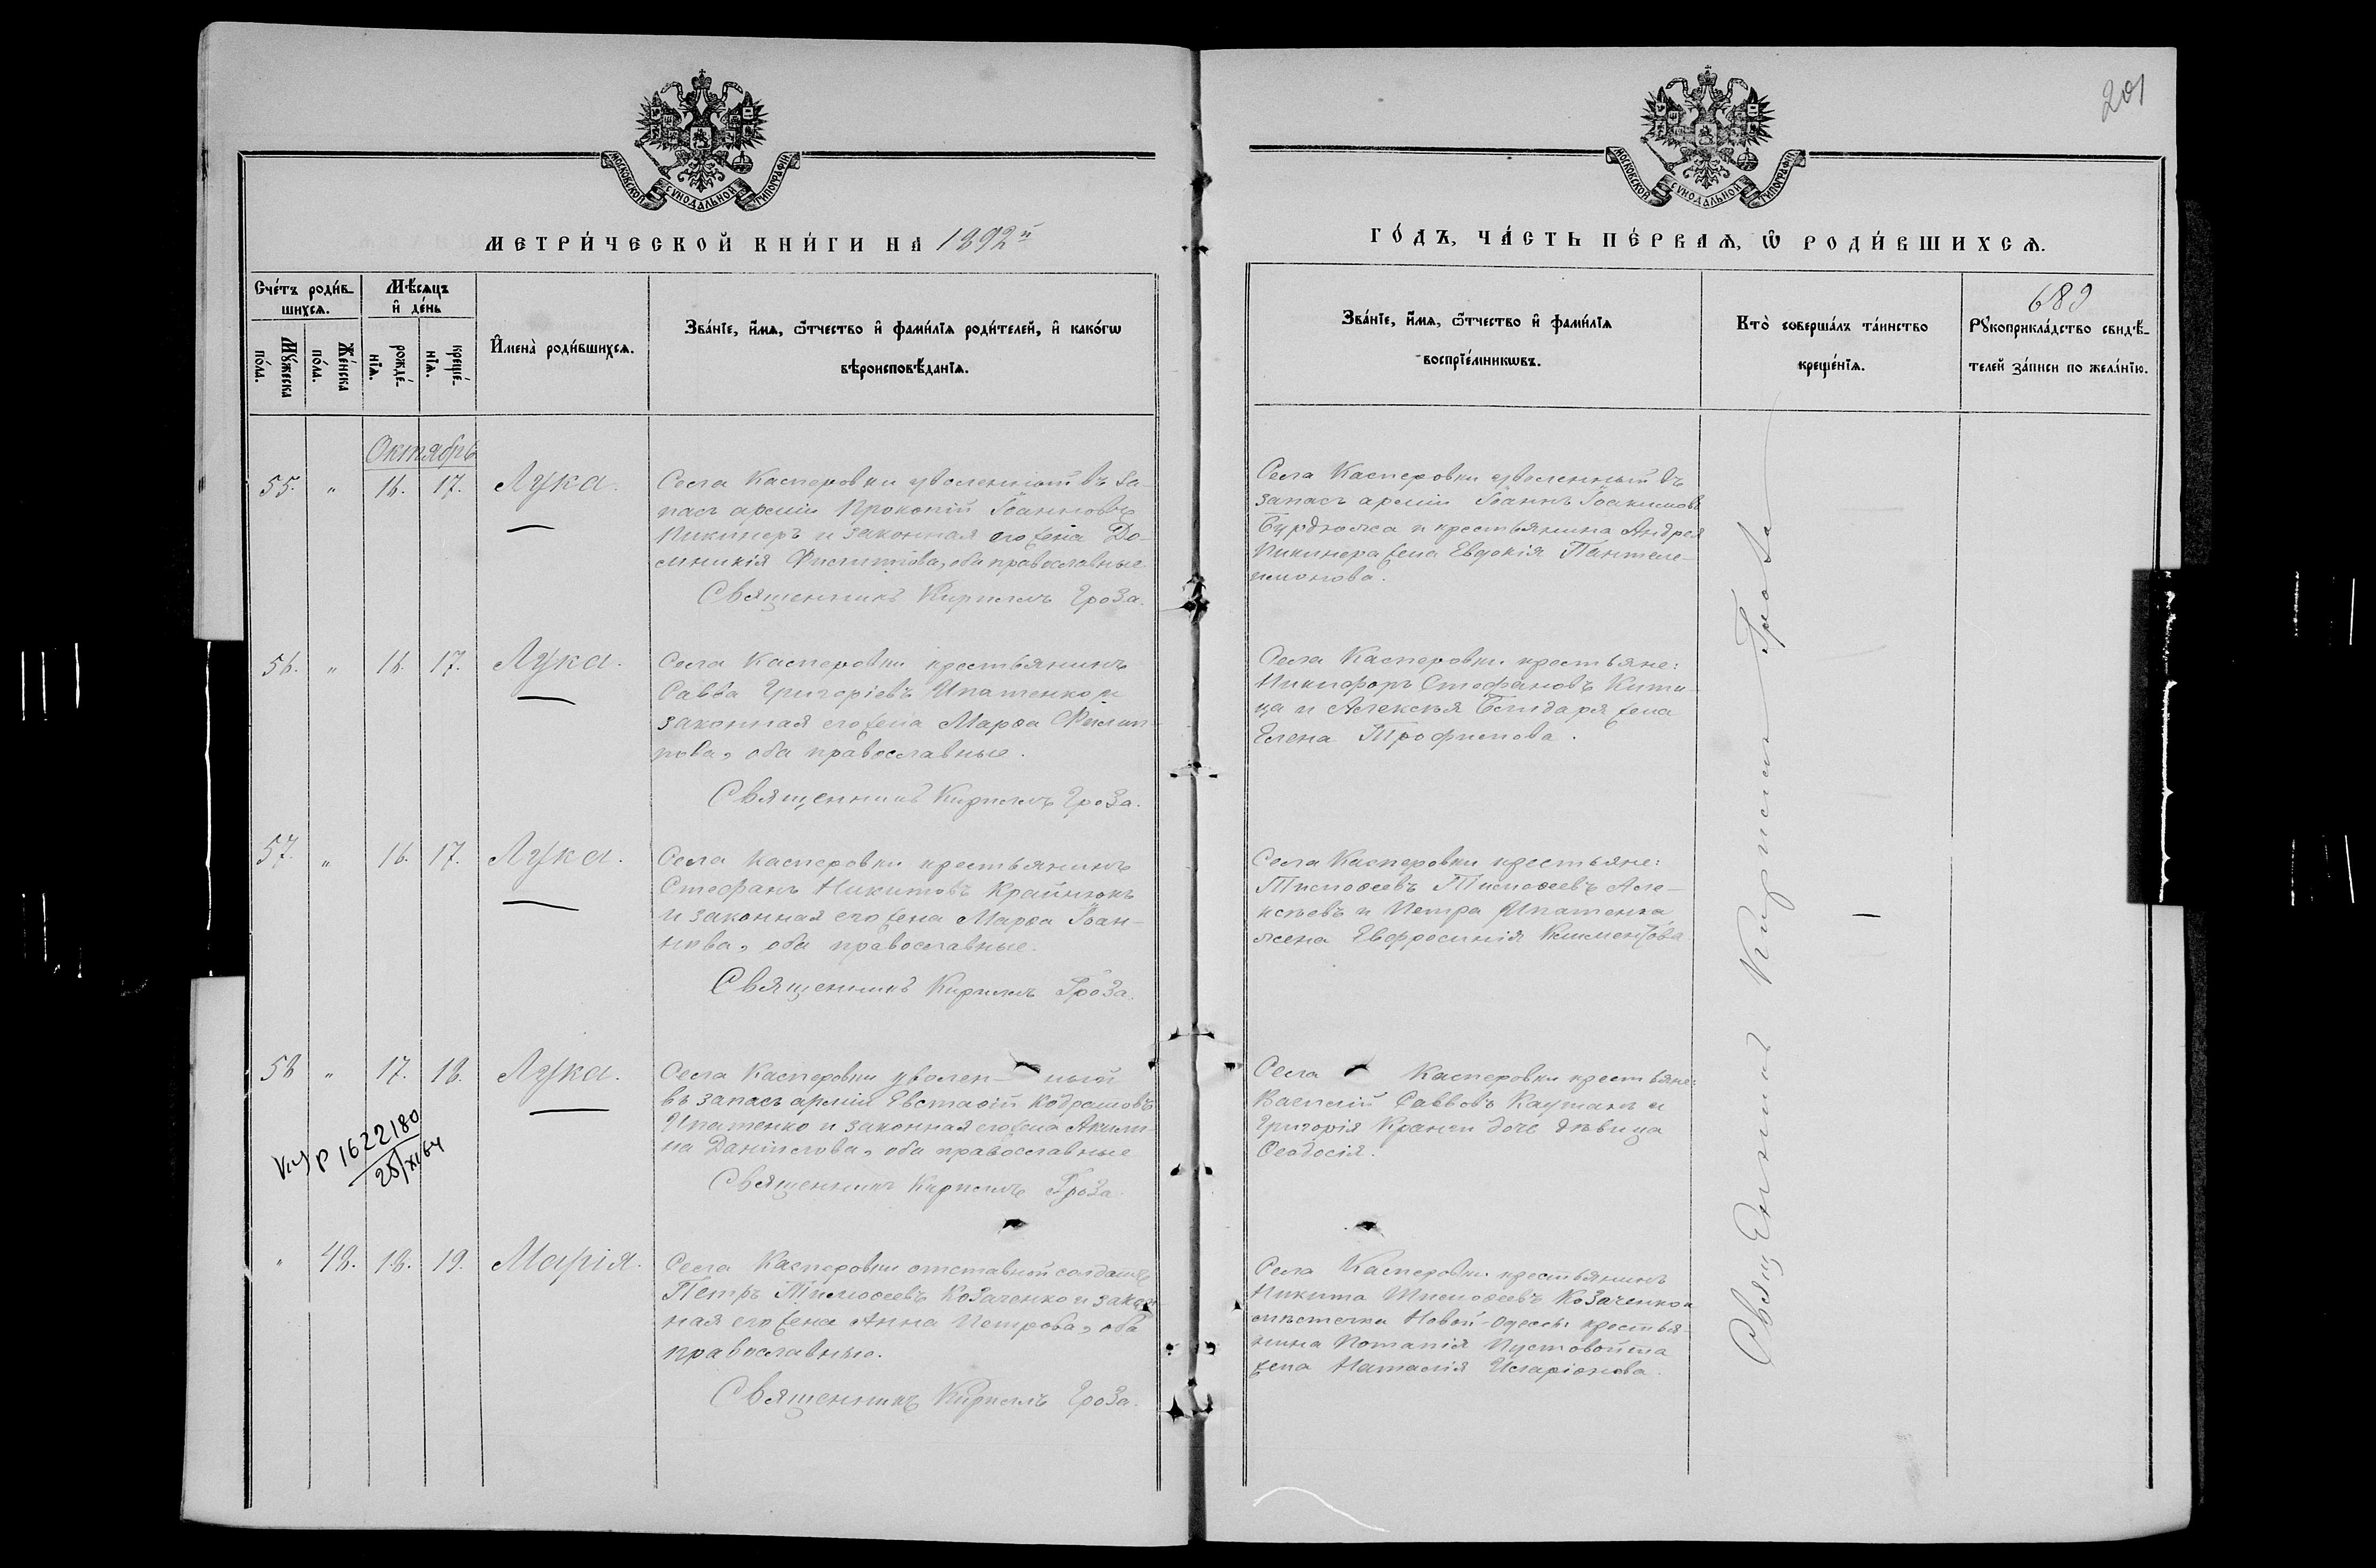 201
МОСКОВСКОЙ СѴНОДАЛЬНОЙ ТИПОГРАФІИ
МОСКОВСКОЙ СѴНОДАЛЬНОЙ ТИПОГРАФІИ
МЕТРИ́ЧЕСКОЙ КНИ́ГИ НА 1892й
ГО́ДЪ, ЧА́СТЬ ПЕ́РВАѦ, Ѡ҆ РОДИ́ВШИХСѦ.
Сче́тъ роди́в-
шихсѧ.
Мꙋ́жеска
по́ла.
Же́нска
по́ла.
Мѣ́сѧцъ
и҆ де́нь
рожде́-
нїѧ.
креще́-
нїѧ.
И҆мена̀ роди́вшихсѧ.
Зва́нїе, и҆́мѧ, ѻ҆́тчество и҆ фами́лїѧ роди́телей, и҆ како́гѡ
вѣроисповѣ́данїѧ.
Зва́нїе, и҆́мѧ, ѻ҆́тчество и҆ фами́лїѧ
воспрїе́мникѡвъ.
Кто̀ соверша́лъ та́инство
креще́нїѧ.
689
Рꙋкоприкла́дство свидѣ́-
телей за́писи по жела́нїю.
Октябрь
55. " 16. 17. Лука.
Села Касперовки уволенный въ за-
пасъ арміи Прокопій Іоанновъ
Пикинеръ и законная его жена До-
мникія Филиппова, оба православные
Священникъ Кириллъ Гроза.
Села Касперовки уволенный въ
запасъ арміи Іоаннъ Іоакимовъ
и крестьянина Андрея
Пикинера жена Евдокія Пантеле-
имонова.
56. " 16. 17. Лука.
Села Касперовки крестьянинъ
Савва Григоріевъ Ипатенко и
законная его жена Марѳа Филип-
пова, оба православные.
Священникъ Кириллъ Гроза.
Села Касперовки крестьяне:
Никифоръ Стефановъ Кити-
ца и Алексѣя Бондаря жена
Елена Трофимова.
57. " 16. 17. Лука.
Села Касперовки крестьянинъ
Стефанъ Никитовъ Крайнюкъ
и законная его жена Марѳа Іоан-
нова, оба православные.
Священникъ Кириллъ Гроза.
Села Касперовки крестьяне:
Тимоѳеевъ Тимоѳеевъ Але-
ксѣевъ и Петра Ипатенка
жена Евфросинія Климентова
58 " 17. 18. Лука.
Села Касперовки уволен- ный
въ запасъ арміи Евстаѳій Кодратовъ
Ипатенко и законная его жена Акили-
на Даніилова, оба православные
Священникъ Кириллъ Гроза.
Села Касперовки крестьяне:
Василій Саввовъ Каутанъ и
Григорія дочь дѣвица
Ѳеодосія.
1622180
25/XI 64
" 48. 18. 19. Марія.
Села Касперовки отставной солдатъ
Петръ Тимоѳеевъ Козаченко и закон-
ная его жена Анна Петрова, оба
православные.
Священникъ Кириллъ Гроза.
Села Касперовки крестьянинъ
Никита Тимоѳеевъ Козаченко и
мѣстечка Новой-Одессы крестья-
нина Потапія Пустовойта
жена Наталія Иларіонова.
Священникъ Кириллъ Гроза